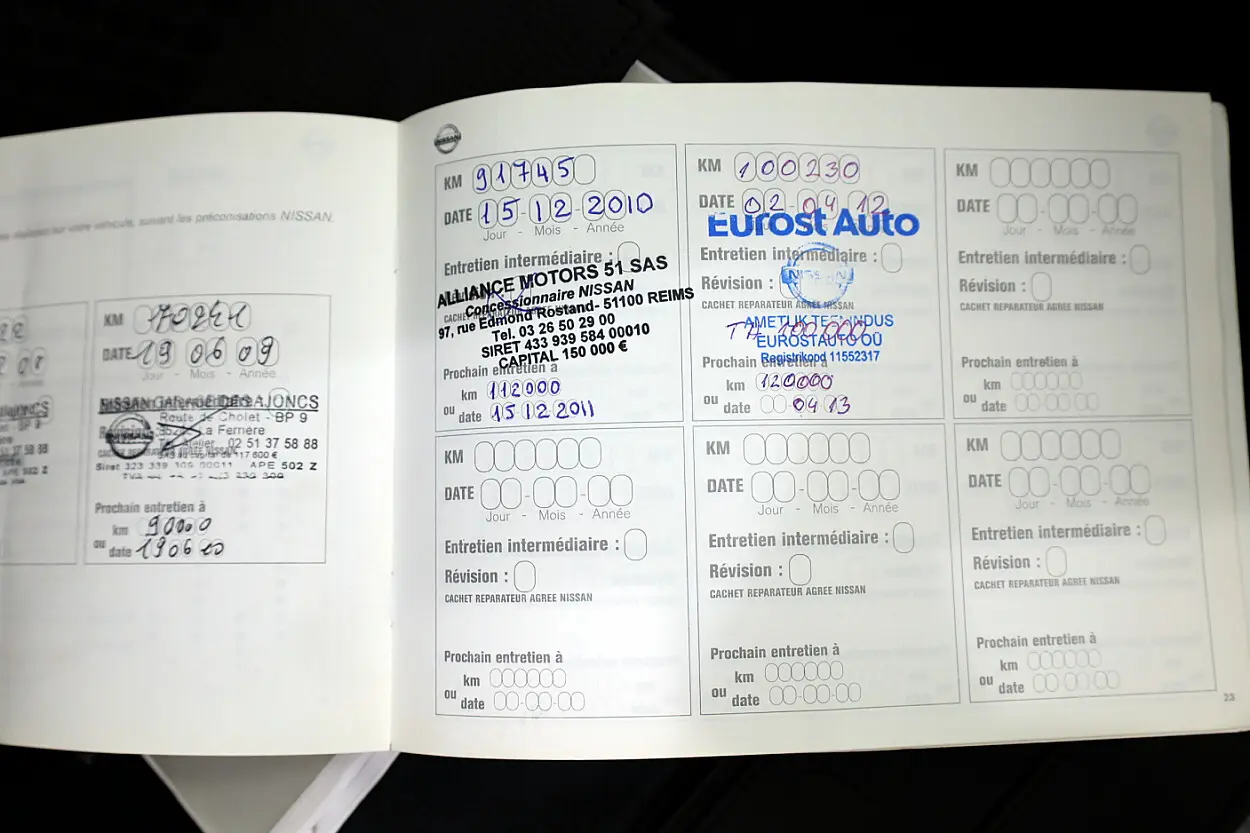 tes réalisées sur votre véhicule, suivant les préconisations NISSAN.
KM 170241
DATE 19 06 09
Jour - Mois - Année
NISSAN GARAGE DES AJONCS
Route de Cholet - BP 9
La Ferrière
02 51 37 58 88
APE 502 Z
Prochain entretien à
km 90000
ou date 19 06 10
NISSAN
KM 91745
DATE 15-12-2010
Jour - Mois - Année
Entretien intermédiaire :
ALLIANCE MOTORS 51 SAS
Concessionnaire NISSAN
97, rue Edmond Rostand- 51100 REIMS
Tel. 03 26 50 29 00
SIRET 433 939 584 00010
CAPITAL 150 000 €
Prochain entretien à
km 112000
ou date 15 12 2011
KM 100230
DATE 02-04 12
Eurost Auto
Entretien intermédiaire :
Révision :
NISSAN
CACHET REPARATEUR AGREE NISSAN
AMETLIK TEENINDUS
TH 100.000
EUROSTAUTO OÜ
Registrikood 11552317
Prochain entretien à
km 120000
ou date 04 13
KM
DATE
Jour - Mois - Année
Entretien intermédiaire :
Révision :
CACHET REPARATEUR AGREE NISSAN
Prochain entretien à
km
ou date
KM
DATE
Jour - Mois - Année
Entretien intermédiaire :
Révision :
CACHET REPARATEUR AGREE NISSAN
Prochain entretien à
km
ou date
KM
DATE
Jour - Mois - Année
Entretien intermédiaire :
Révision :
CACHET REPARATEUR AGREE NISSAN
Prochain entretien à
km
ou date
KM
DATE
Jour - Mois - Année
Entretien intermédiaire :
Révision :
CACHET REPARATEUR AGREE NISSAN
Prochain entretien à
km
ou date
23